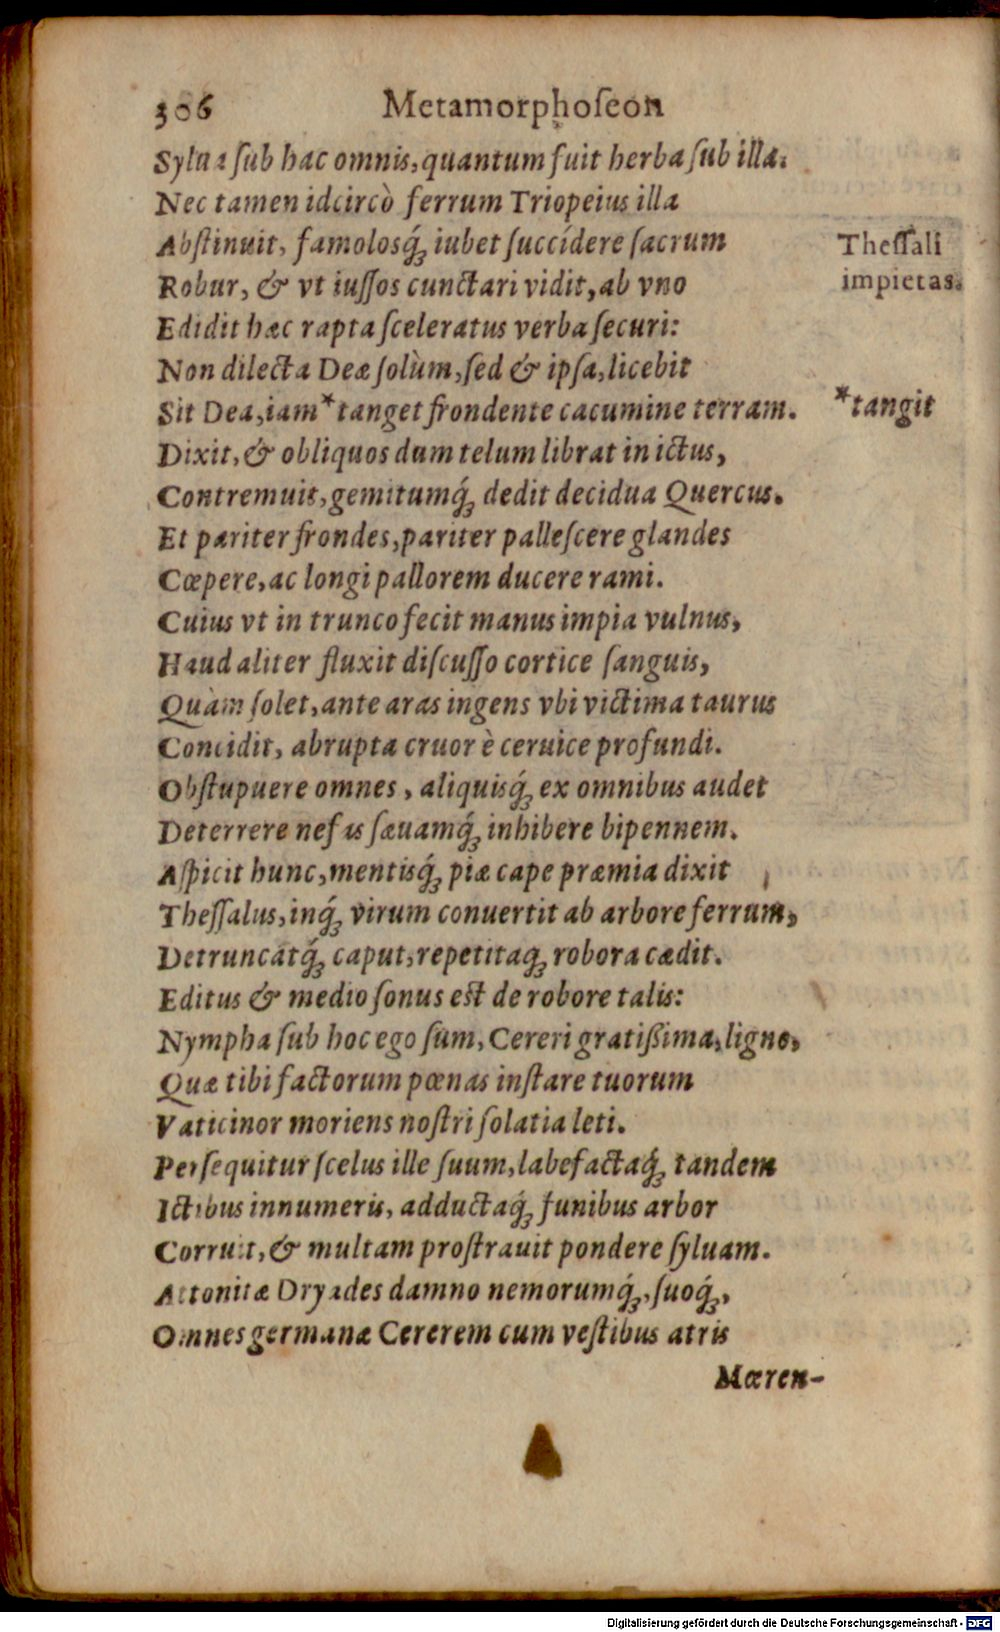 306 Metamorphoſeon
Sylua ſub hac omnis, quantum fuit herba ſub illa.
Nec tamen idcircò ferrum Triopeius illa
Abſtinuit, famolosq́ꝫ iubet ſuccídere ſacrum
Theſſali
Robur, & vt iuſſos cunctari vidit, ab vno
impietas.
Edidit hæc rapta ſceleratus verba ſecuri:
Non dilecta Deæ ſolùm, ſed & ipſa, licebit
Sit Dea, iam * tanget frondente cacumine terram.
* tangit
Dixit, & obliquos dum telum librat in ictus,
Contremuit, gemitumq́ꝫ dedit decidua Quercus.
Et pariter frondes, pariter palleſcere glandes
Cœpere, ac longi pallorem ducere rami.
Cuius vt in trunco fecit manus impia vulnus,
Haud aliter fluxit diſcuſſo cortice ſanguis,
Quàm ſolet, ante aras ingens vbi victima taurus
Concidit, abrupta cruor è ceruice profundi.
Obſtupuere omnes, aliquisq́ꝫ ex omnibus audet
Deterrere nefas ſæuamq́ꝫ inhibere bipennem.
Aſpicit hunc, mentisq́ꝫ piæ cape præmia dixit
Theſſalus, inq́ꝫ virum conuertit ab arbore ferrum,
Detruncátq́ꝫ caput, repetitaqꝫ robora cædit.
Editus & medio ſonus est de robore talis:
Nympha ſub hoc ego ſum, Cereri gratißima, ligno,
Quæ tibi factorum pœnas inſtare tuorum
Vaticinor moriens noſtri ſolatia leti.
Perſequitur ſcelus ille ſuum, labefactaq́ꝫ tandem
Ictibus innumeris, adductaq́ꝫ funibus arbor
Corruit, & multam proſtrauit pondere ſyluam.
Attonitæ Dryades damno nemorumq́ꝫ, ſuoq́ꝫ,
Omnes germanæ Cererem cum veſtibus atris
Mœren-
Digitalisierung gefördert durch die Deutsche Forschungsgemeinschaft - DFG